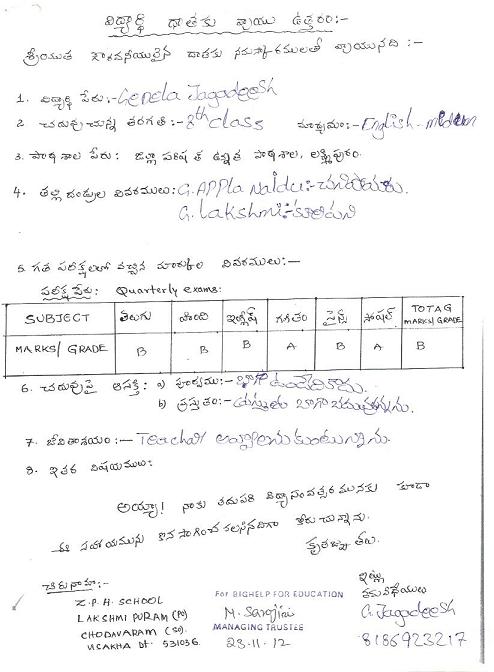 విద్యార్థి దాతకు వ్రాయు ఉత్తరం:-
శ్రీయుత గౌరవనీయులైన దాతకు నమస్కారములతో వ్రాయునది :-
1. విద్యార్థి పేరు:- Genela Jagadeesh
2 చదువుచున్న తరగతి:- 8th class మాధ్యమం:- English - mideam
3. పాఠశాల పేరు: జిల్లా పరిషత్ ఉన్నత పాఠశాల, లక్ష్మీపురం.
4. తల్లిదండ్రుల వివరములు: G. Appla Naidu:- చనిపోయారు.
G. Lakshmi:- కూలిపని
5. గత పరీక్షలలో వచ్చిన మార్కుల వివరములు:-
పరీక్ష పేరు: Quarterly exams:
SUBJECT తెలుగు హింది ఇంగ్లీష్ గణితం సైన్స్ సోషల్ TOTAG MARKS/GRADE
MARKS/ GRADE B B B A B A B
6. చదువుపై ఆసక్తి: a) పూర్వము:- బాగా ఉండేదికాదు.
b) ప్రస్తుతం:- ప్రస్తుతం బాగా చదువుతున్నాను.
7. జీవితాశయం:- Teachar అవ్వాలనుకుంటున్నాను
8. ఇతర విషయములు:
అయ్యా! నాకు తదుపరి విద్యాసంవత్సరమునకు కూడా
ఈ సహాయమును కొనసాగించ వలసినదిగా కోరుచున్నాను.
కృతజ్ఞతలు.
చిరునామా:-
Z.P.H. SCHOOL
LAKSHMI PURAM (PO)
CHODAVARAM (SO).
VISAKHA Dt. 531036.
For BIGHELP FOR EDUCATION
M. Sarojini
MANAGING TRUSTEE
23.11.12
ఇట్లు
తమ విధేయులు
G. Jagadeesh
8186923217